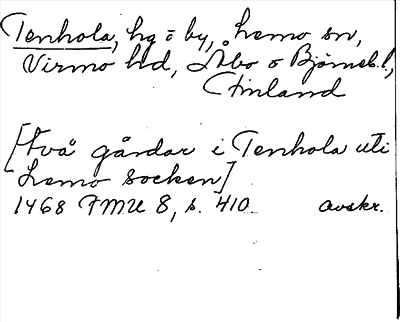 Tenhola, hg o by, Lemo sn,
Virmo hd, Åbo o Björneb. l.,
Finland
[två gårdar i Tenhola uti
Lemo socken]
1468 FMU 8, s. 410. avskr.